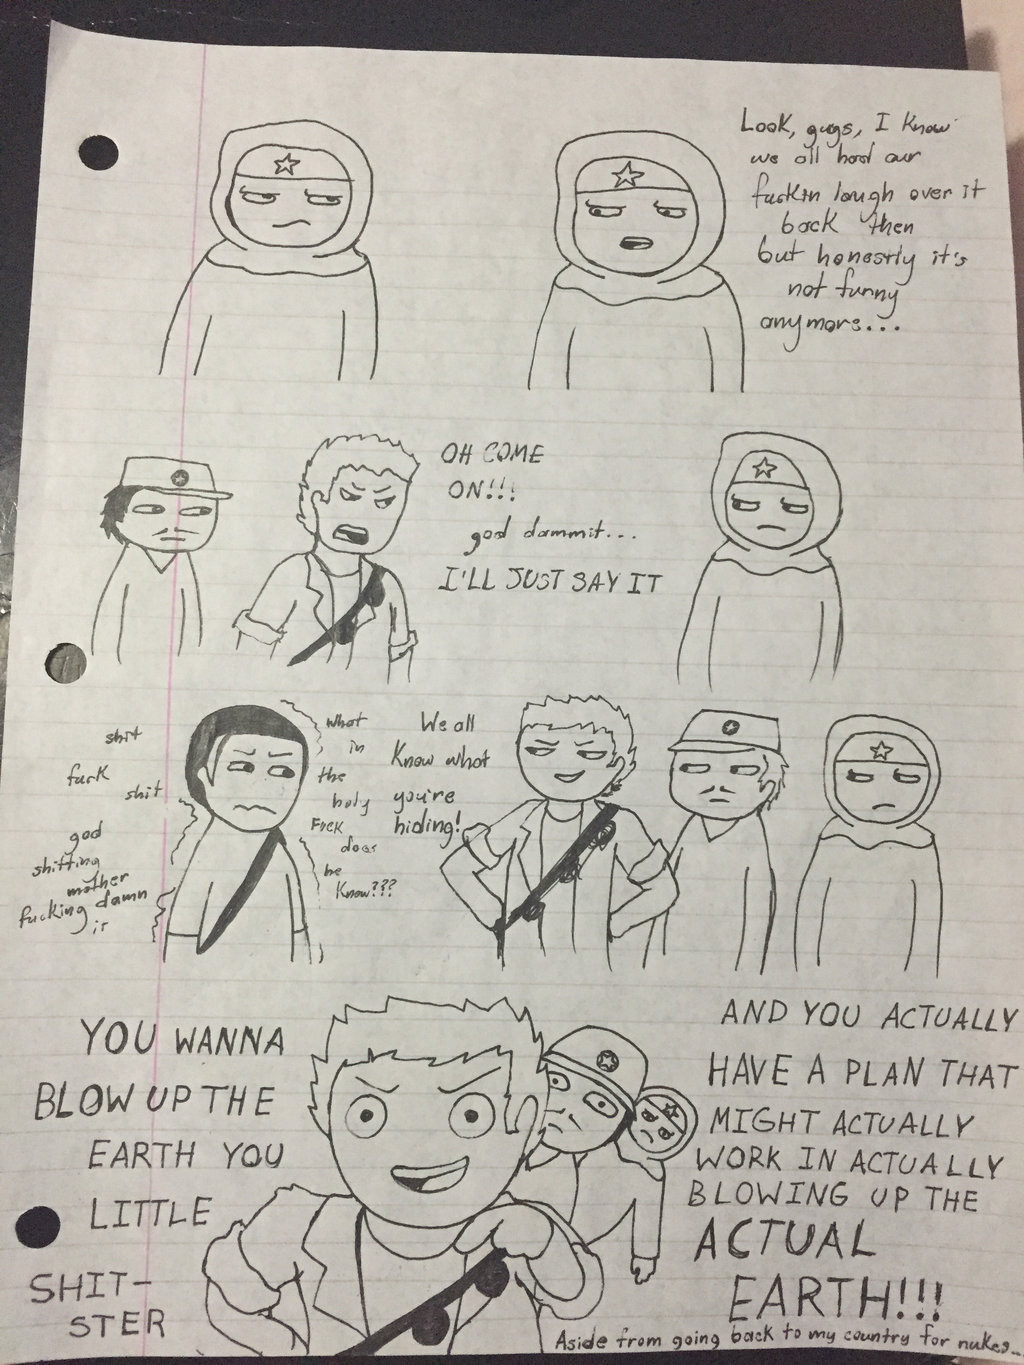 Look, guys, I know
we all had our
fuckin laugh over it
back then
but honestly it's
not funny
anymore...
OH COME
ON!!!
god dammit...
I'LL JUST SAY IT
shit
fuck
shit
god
shitting
mother
fucking damn
it
what
in
the
holy
Fuck
does
he
know???
We all
know what
you're
hiding!
YOU WANNA
BLOW UP THE
EARTH YOU
LITTLE
SHIT-
STER
AND YOU ACTUALLY
HAVE A PLAN THAT
MIGHT ACTUALLY
WORK IN ACTUALLY
BLOWING UP THE
ACTUAL
EARTH!!!
Aside from going back to my country for nukes...